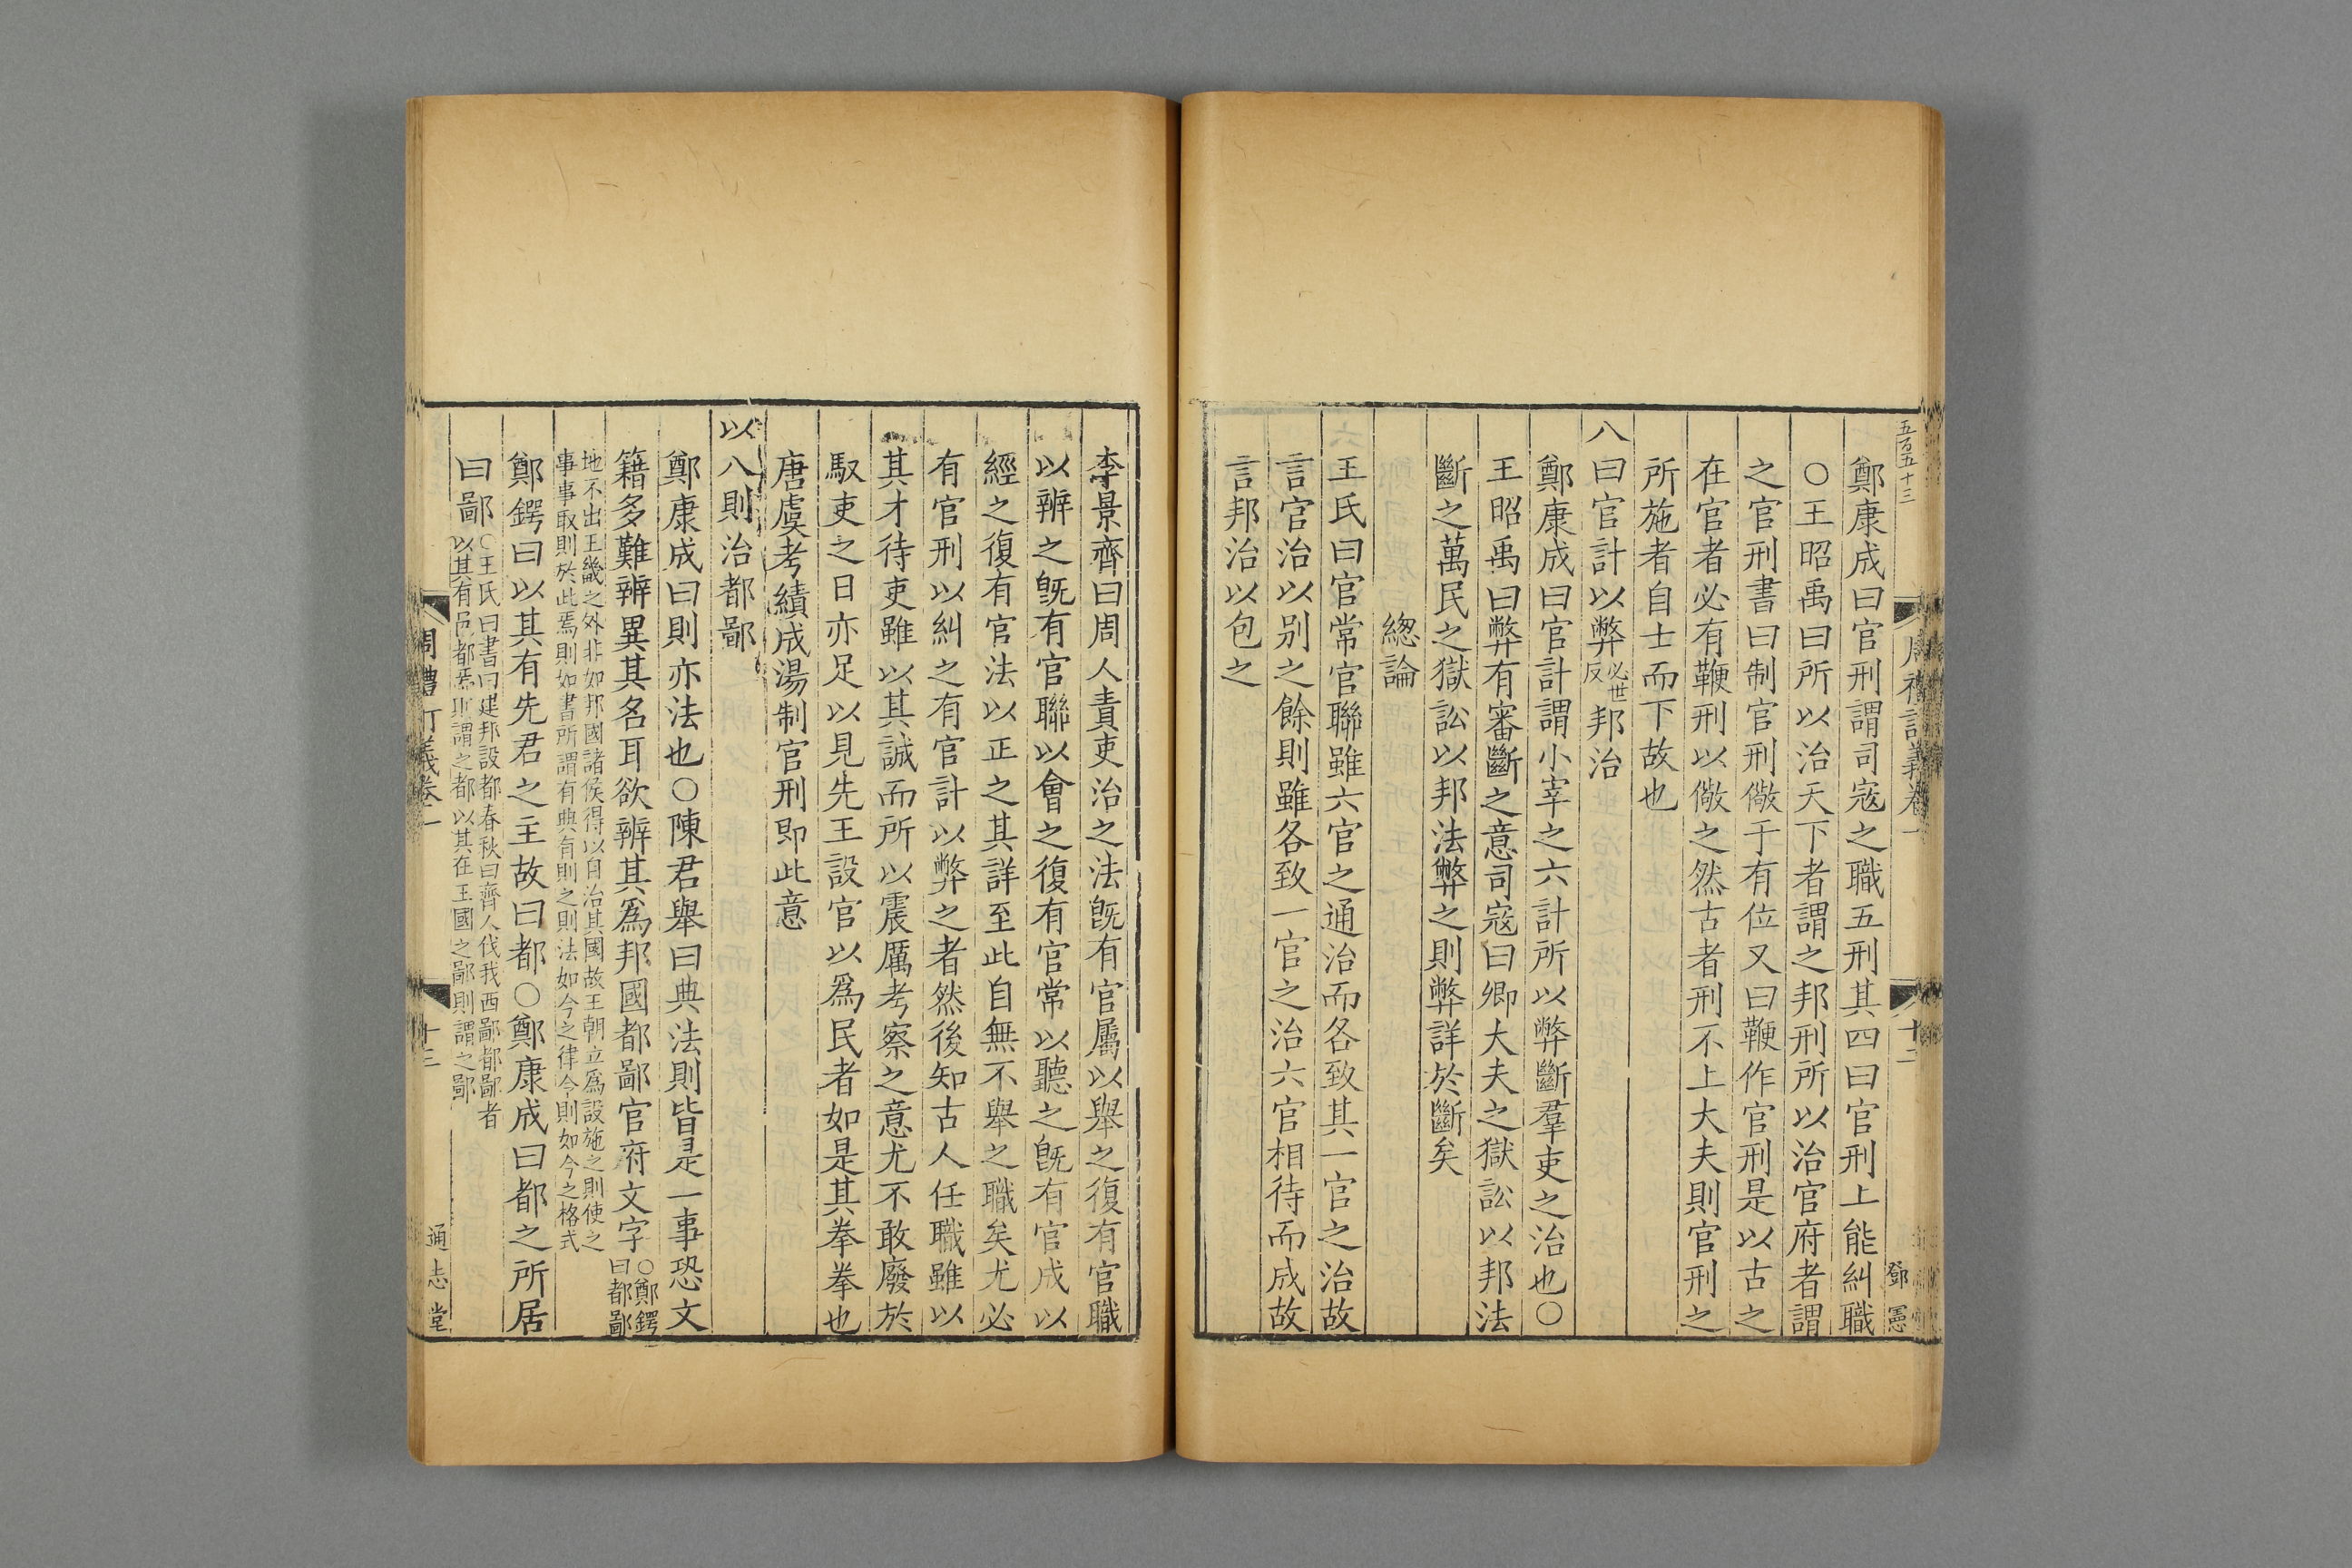 五百五十三
周禮訂義卷一
十二
鄧憲
鄭康成曰官刑謂司寇之職五刑其四曰官刑上能糾職
○王昭禹曰所以治天下者謂之邦刑所以治官府者謂
之官刑書曰制官刑儆于有位又曰鞭作官刑是以古之
在官者必有鞭刑以儆之然古者刑不上大夫則官刑之
所施者自士而下故也
八曰官計以弊必世反邦治
鄭康成曰官計謂小宰之六計所以弊斷羣吏之治也○
王昭禹曰弊有審斷之意司寇曰卿大夫之獄訟以邦法
斷之萬民之獄訟以邦法弊之則弊詳於斷矣
總論
王氏曰官常官聯雖六官之通治而各致其一官之治故
言官治以別之餘則雖各致一官之治六官相待而成故
言邦治以包之
李景齊曰周人責吏治之法旣有官屬以舉之復有官職
以辨之旣有官聯以會之復有官常以聽之旣有官成以
經之復有官法以正之其詳至此自無不舉之職矣尤必
有官刑以糾之有官計以弊之者然後知古人任職雖以
其才待吏雖以其誠而所以震厲考察之意尤不敢廢於
馭吏之日亦足以見先王設官以爲民者如是其拳拳也
唐虞考績成湯制官刑即此意
以八則治都鄙
鄭康成曰則亦法也○陳君舉曰典法則皆是一事恐文
籍多難辨異其名耳欲辨其爲邦國都鄙官府文字○鄭鍔曰都鄙
地不出王畿之外非如邦國諸侯得以自治其國故王朝立爲設施之則使之
事事取則於此焉則如書所謂有典有則之則法如今之律令則如今之格式
鄭鍔曰以其有先君之主故曰都○鄭康成曰都之所居
曰鄙○王氏曰書曰建邦設都春秋曰齊人伐我西鄙都鄙者
以其有邑都焉則謂之都以其在王國之鄙則謂之鄙
周禮訂義卷一
十三
通志堂